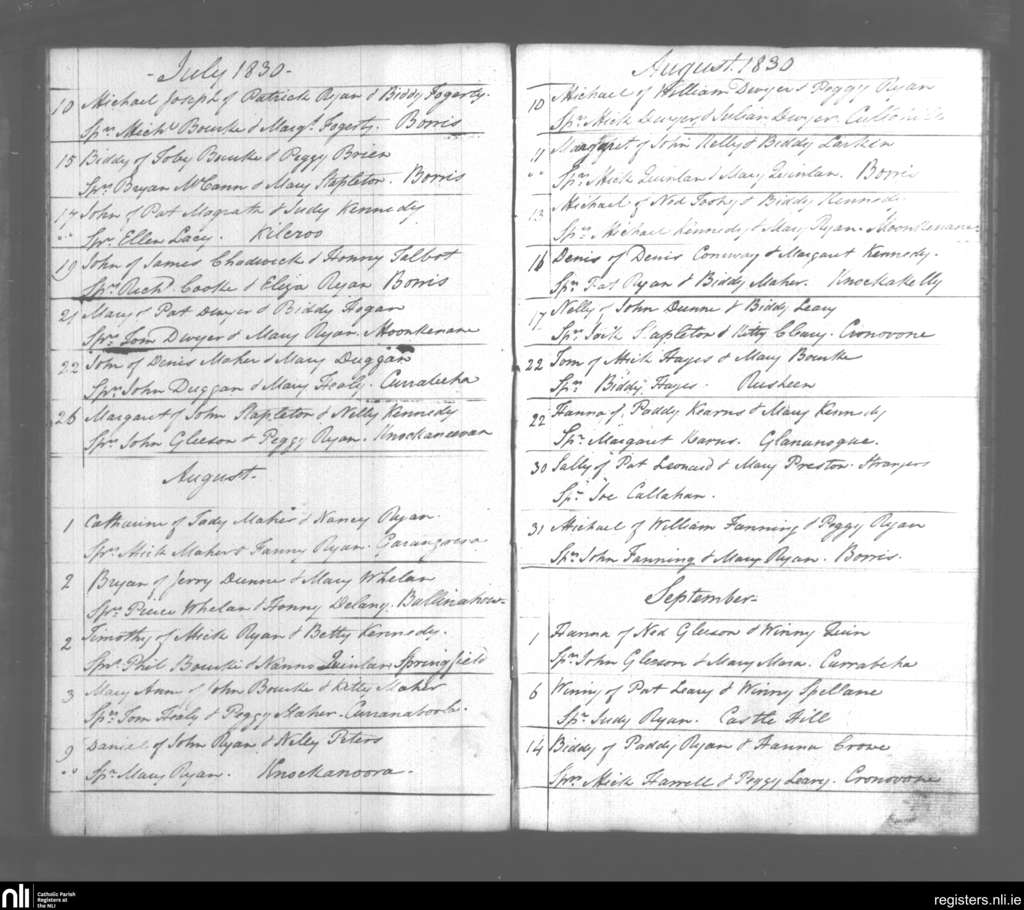 - July 1830 -
10 Michael Joseph of Patrick Ryan & Biddy Fogerty.
Sprs Michl Bourke & Margt Fogerty. Borris
15 Biddy of Toby Bourke & Peggy Brien
Sprs Bryan McCann & Mary Stapleton. Borris
17 John of Pat Magrath & Judy Kennedy
" Spr. Ellen Lacy. Kilcroo
19 John of James Chadwick & Honny Talbot
Sprs Richd Cooke & Eliza Ryan Borris
21 Mary of Pat Dwyer & Biddy Hogan
Sprs Tom Dwyer & Mary Ryan. Moonkenane
22 John of Denis Maher & Mary Duggan
Sprs John Duggan & Mary Healy. Currateha
26 Margaret of John Stapleton & Nelly Kennedy
Sprs John Gleeson & Peggy Ryan. Knockaneevan
August.
1 Catharine of Tady Maher & Nancy Ryan.
Sprs Mick Maher & Fanny Ryan.
2 Bryan of Jerry Dunne & Mary Whelan
Sprs Pierce Whelan & Honny Delany. Ballinahow=
2 Timothy of Mick Ryan & Betty Kennedy.
Sprs Phil Bourke & Nanno Quinlan Springfield
3 Mary Ann of John Bourke & Kitty Maher
Sprs Tom Healy & Peggy Maher. Curranaboola.
9 Daniel of John Ryan & Nelly Peters
" Spr. Mary Ryan. Knockanoora.
August. 1830
10 Michael of William Dwyer & Peggy Ryan
Sprs Mick Dwyer & Juban Dwyer.
11 Margaret of John Kelly & Biddy Larkin
" Sprs Mick Quinlan & Mary Quinlan. Borris
13 Michael of Ned Toohy & Biddy Kennedy
Sprs Michael Kennedy & Mary Ryan. Moonkenane
16 Denis of Denis Conway & Margaret Kennedy.
Sprs Pat Ryan & Biddy Maher. Knockakelly
17 Nelly of John Dunne & Biddy Leary
Sprs Jack Stapleton & Kitty Cleary. Cronovone
22 Tom of Mick Hayes & Mary Bourke
Spr. Biddy Hayes. Rusheen
22 Hanna of Paddy Kearns & Mary Kennedy
Spr. Margaret Karns. Glanansgue.
30 Sally of Pat Leonard & Mary Preston. Strangers
Spr. Joe Callahan.
31 Michael of William Fanning & Peggy Ryan
Sprs John Fanning & Mary Ryan. Borris.
September=
1 Hanna of Ned Gleeson & Winny Quin
Sprs John Gleeson & Mary Mara. Currabeha
6 Winny of Pat Leary & Winny Spellane
Spr. Judy Ryan. Castle Hill
14 Biddy of Paddy Ryan & Hanna Crowe
Sprs Mick Farrell & Peggy Leary. Cronovone
nli Catholic Parish
Registers at
the NLI
registers.nli.ie